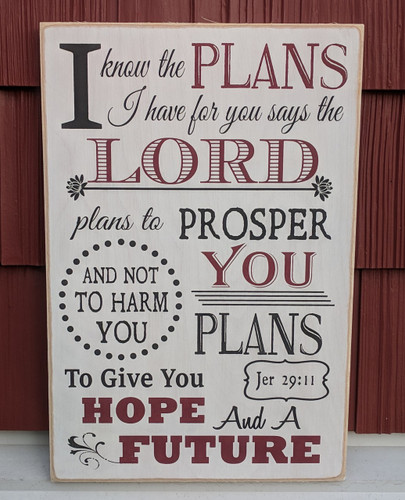 I know the PLANS
I have for you says the
LORD
plans to PROSPER
YOU
AND NOT
TO HARM
YOU
PLANS
To Give You
Jer 29:11
HOPE And A
FUTURE